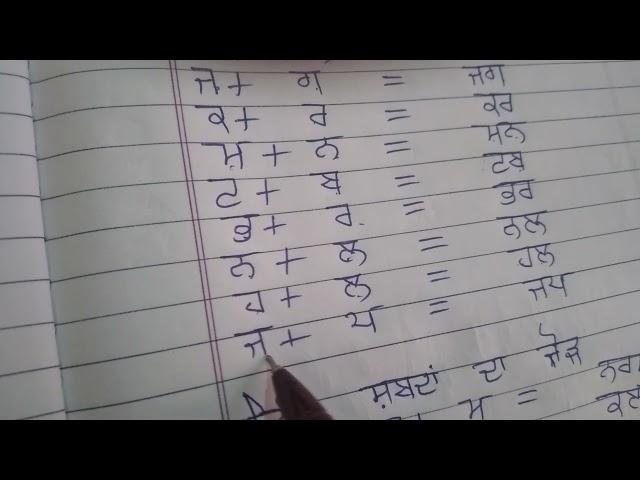 ਜ + ਗ = ਜਗ
ਕ + ਰ = ਕਰ
ਮ + ਨ = ਮਨ
ਟ + ਬ = ਟਬ
ਭ + ਰ = ਭਰ
ਨ + ਲ = ਨਲ
ਹ + ਲ = ਹਲ
ਜ + ਪ = ਜਪ
ਸ਼ਬਦਾਂ ਦਾ ਜੋੜ
ਮ =